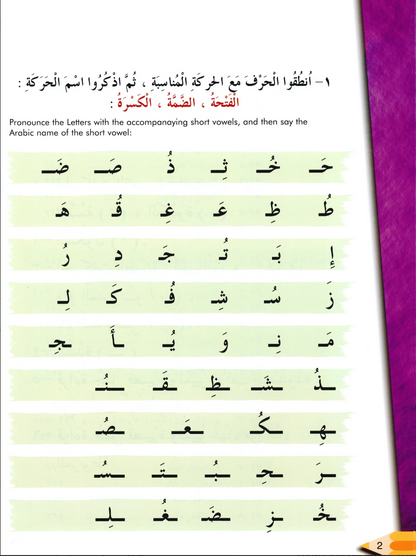 ١- اُنطُقُوا الْحَرْفَ مَعَ الحركةِ الْمُناسِبَةِ ، ثُمَّ اذْكُرُوا اسْمَ الْحَرَكَةِ :
الْفَتْحَةُ ، الضَّمَّةُ ، الْكَسْرَةُ :
Pronounce the Letters with the accompanaying short vowels, and then say the
Arabic name of the short vowel:
حَـ خُـ ثِـ ذُ صَـ ضَـ
طُ ظِ عَـ غِـ قُـ هَـ
إِ بَـ تُـ جَـ دِ رُ
زَ سُـ شِـ فُـ كَـ لِـ
مَـ نِـ وَ يُـ ـأَ ـجِـ
ـذُ ـشَـ ـظِـ ـقَـ ـنُـ
ـهِـ ـكُـ ـعَـ ـصُـ
ـرَ ـحِـ ـبُـ ـتَـ ـسُـ
ـخُـ ـزِ ـضَـ ـغُـ ـلِـ
2